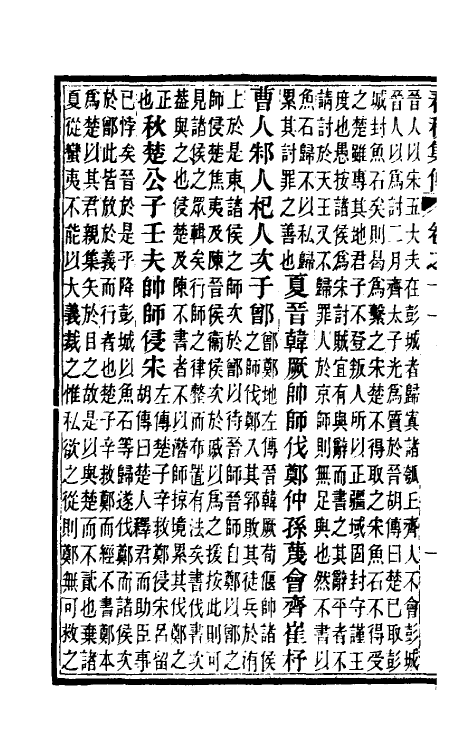 晉人以宋五大夫在彭城者歸寘諸瓠丘齊人不會彭城
晉人以爲討二月齊太子光爲質於晉胡傳曰楚已取彭
城封魚石矣則曷爲繫之宋楚不得取之宋魚石不得受
之楚雖專其地君子不登叛人所以正疆域固封守謹王
度也愚按諸侯爲宋討賊宜有與辭而書之其辭平者不
請討於天王又不歸罪人於京師則無足與也然不書以
魚石歸不以私歸
累其討罪之善也
夏晉韓厥帥師伐鄭仲孫蔑會齊崔杼
曹人邾人杞人次于鄫
鄫鄭地左傳晉韓厥荀偃帥諸侯
之師伐鄭入其郛敗其徒兵於洧
上於是東諸侯之師次於鄫以待晉師晉師自鄭以鄫之
師侵楚焦夷及陳晉侯衛侯次於戚以爲之援按此則可
見諸侯之衆輯矣行師之律整而布置有法矣書伐書次
蓋與之也侵楚及陳不書者不以潛師掠境累其伐鄭之
正
也
秋楚公子壬夫帥師侵宋
左傳楚子辛救鄭侵宋呂留
胡傳曰楚人釋君而助臣事
已悖矣晉於是乎降彭城以魚石等歸遂伐鄭而諸侯次
於鄫此皆放於義而行者也楚子辛救鄭而經不書鄭本
爲楚以其君親集矢於目之故是以與楚而不貳也棄諸
夏從蠻夷不能以大義裁之惟私欲之從則鄭無可救之